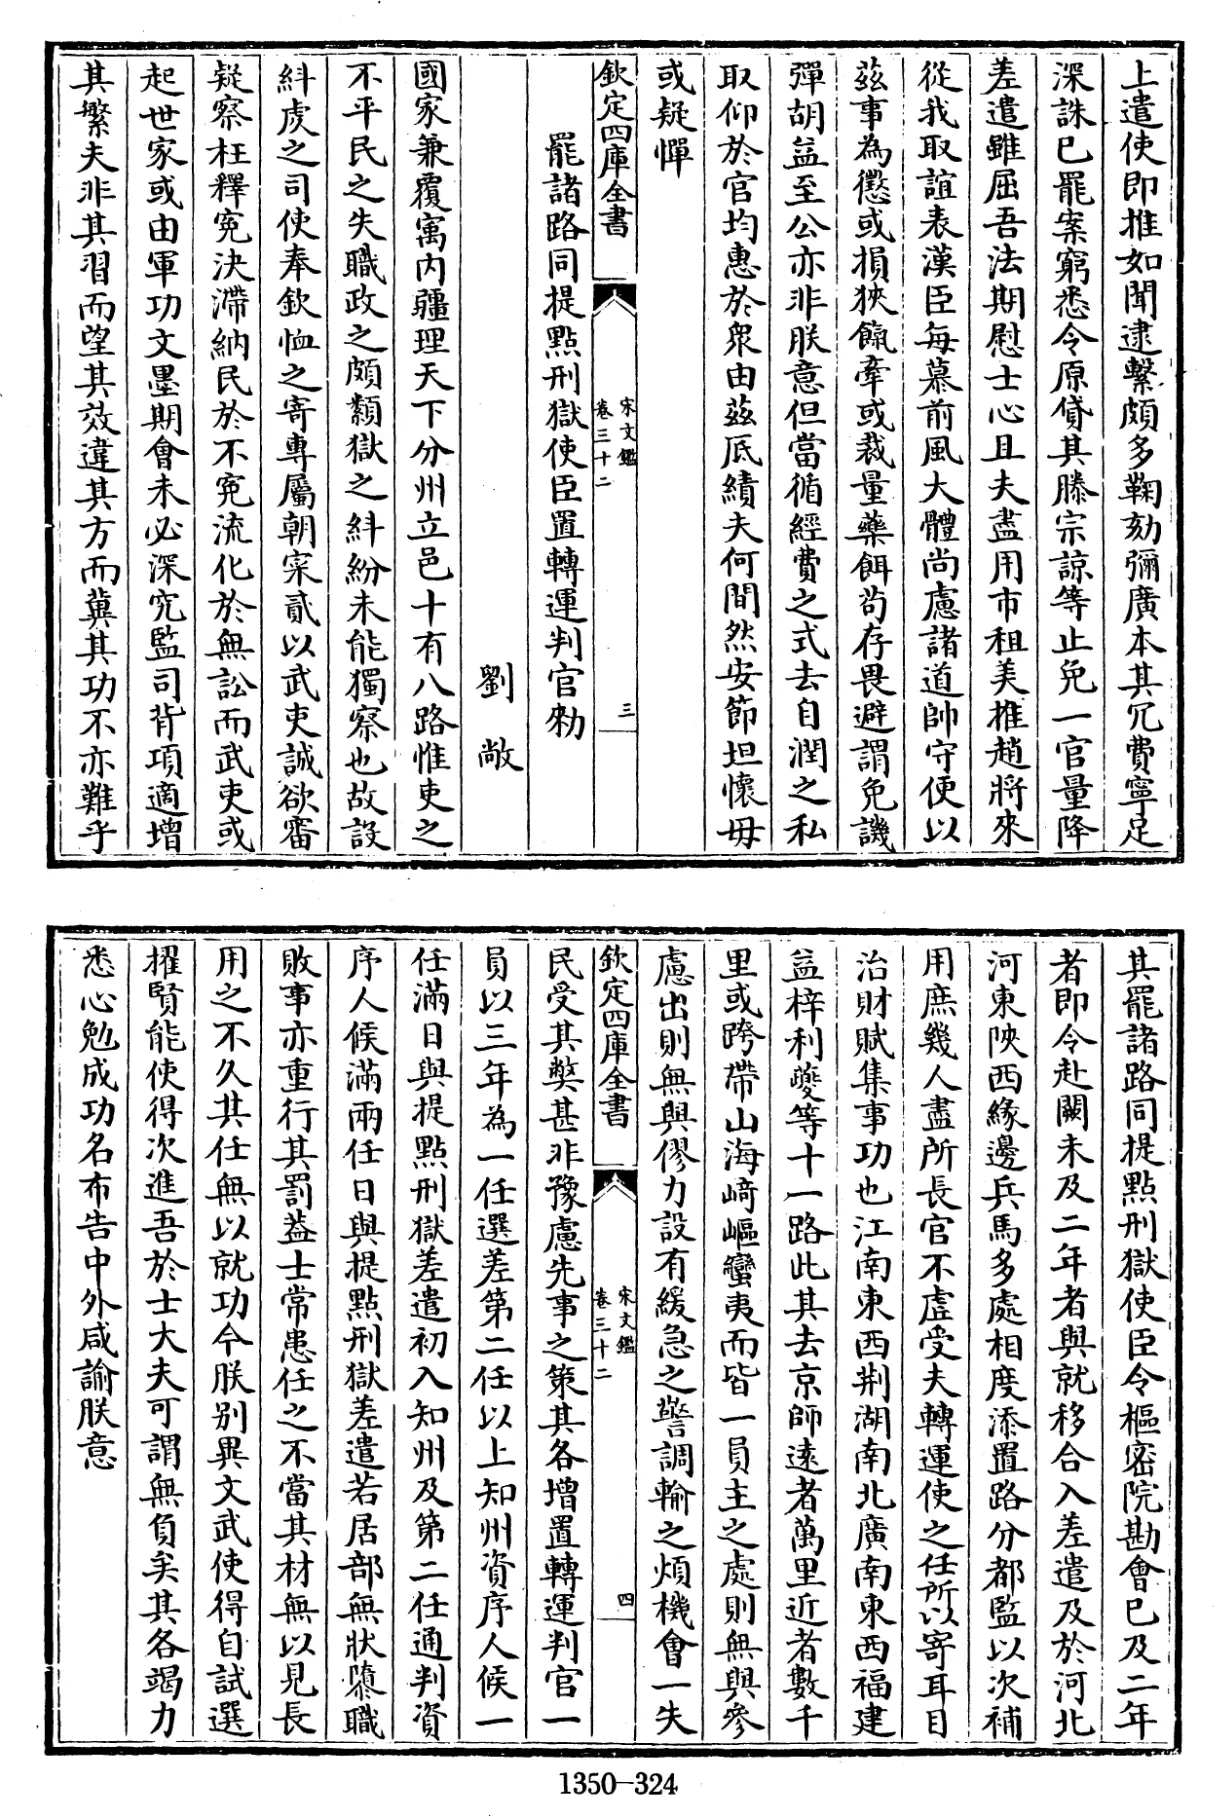 上遣使即推如聞逮繫頗多鞠劾彌廣本其冗費寧足
深誅已罷案窮悉令原貸其滕宗諒等止免一官量降
差遣雖屈吾法期慰士心且夫盡用市租美推趙將來
從我取誼表漢臣每慕前風大體尚慮諸道帥守便以
茲事為懲或損狹餼牽或裁量藥餌茍存畏避謂免譏
彈胡益至公亦非朕意但當循經費之式去自潤之私
取仰於官均惠於衆由茲厎績夫何間然安節坦懷毋
或疑憚
欽定四庫全書
宋文鑑
卷三十二
三
罷諸路同提點刑獄使臣置轉運判官勑
劉敞
國家兼覆寓内疆理天下分州立邑十有八路惟吏之
不平民之失職政之頗纇獄之紏紛未能獨察也故設
紏虔之司使奉欽恤之寄專屬朝寀貳以武吏誠欲審
疑察枉釋寃決滯納民於不寃流化於無訟而武吏或
起世家或由軍功文墨期會未必深究監司背項適增
其繁夫非其習而望其效違其方而冀其功不亦難乎
其罷諸路同提點刑獄使臣令樞密院勘會已及二年
者即令赴闕未及二年者與就移合入差遣及於河北
河東陜西緣邊兵馬多處相度添置路分都監以次補
用庶幾人盡所長官不虛受夫轉運使之任所以寄耳目
治財賦集事功也江南東西荆湖南北廣南東西福建
益梓利夔等十一路此其去京師逺者萬里近者數千
里或跨帶山海崎嶇蠻夷而皆一員主之處則無與參
慮出則無與僇力設有緩急之警調輸之煩機會一失
欽定四庫全書
宋文鑑
卷三十二
四
民受其獘甚非豫慮先事之策其各增置轉運判官一
員以三年為一任選差第二任以上知州資序人候一
任滿日與提點刑獄差遣初入知州及第二任通判資
序人候滿兩任日與提點刑獄差遣若居部無狀隳職
敗事亦重行其罰葢士常患任之不當其材無以見長
用之不久其任無以就功今朕别異文武使得自試選
擢賢能使得次進吾於士大夫可謂無負矣其各竭力
悉心勉成功名布告中外咸諭朕意
1350-324